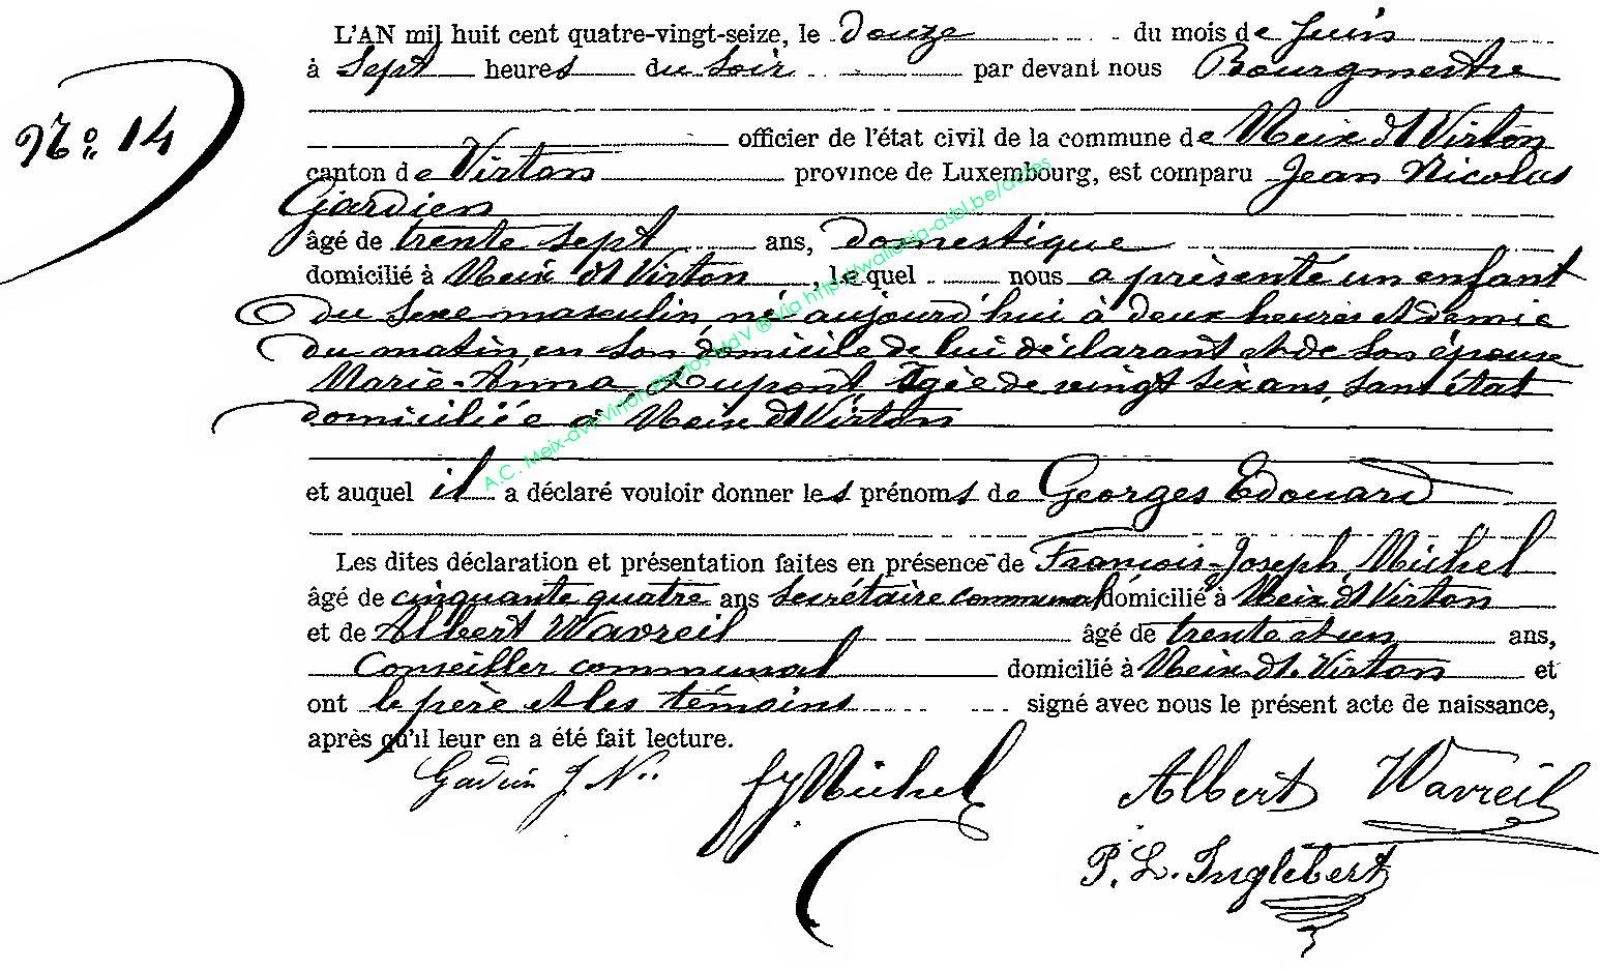 L'AN mil huit cent quatre-vingt-seize, le douze du mois de Juin
à Sept heures du soir par devant nous Bourgmestre
N° 14
officier de l'état civil de la commune de Meix dt Virton
canton de Virton province de Luxembourg, est comparu Jean Nicolas
Gardien
âgé de trente sept ans, domestique
domicilié à Meix dt Virton, lequel nous a présenté un enfant
du sexe masculin né aujourd'hui à deux heures et demie
du matin, en son domicile de lui déclarant et de son épouse
Marie-Anna Dupont, âgée de vingt six ans, sans état
domiciliée à Meix dt Virton
et auquel il a déclaré vouloir donner les prénoms de Georges Edouard
Les dites déclaration et présentation faites en présence de François-Joseph Michel
âgé de cinquante quatre ans Secrétaire communal domicilié à Meix dt Virton
et de Albert Wavreil âgé de trente et un ans,
Conseiller communal domicilié à Meix dt. Virton et
ont le père et les témoins signé avec nous le présent acte de naissance,
après qu'il leur en a été fait lecture.
J. N. fj Michel Albert Wavreil
P. L. Inglebert
A.C. Meix-dvt-Virton Photos MdV ® via http://wallonia-asbl.be/actes